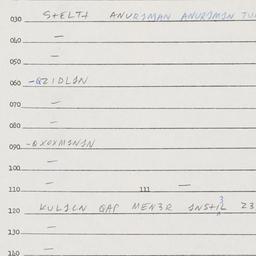 030 STELTA ANURIMAN ANURIMIN TU
040 —
050 —
060 -QZIDLIN
070 —
080 —
090 -QXOXMININ
100 —
110 — 111 —
120 KULICN QAP MENZR INSTIL 3 23
130 —
140 —